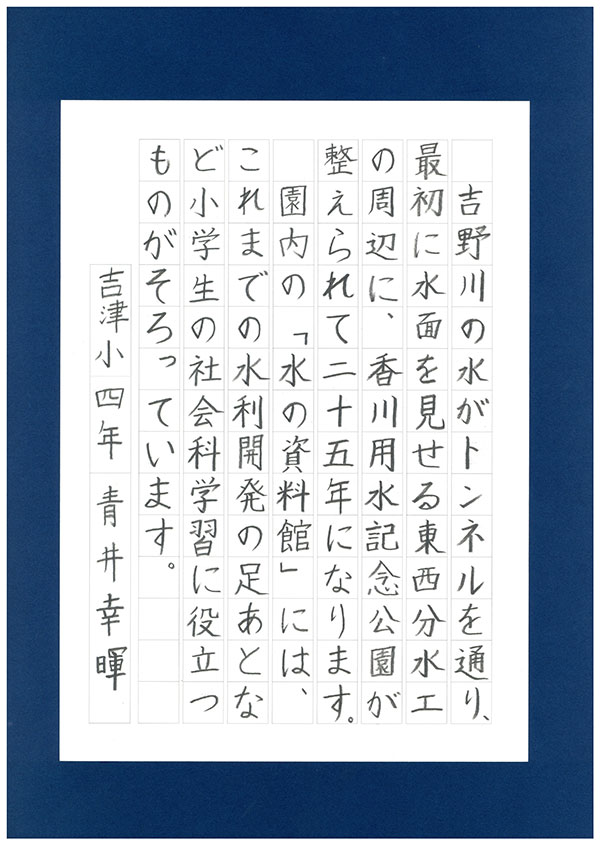 吉野川の水がトンネルを通り、
最初に水面を見せる東西分水工
の周辺に、香川用水記念公園が
整えられて二十五年になります。
園内の「水の資料館」には、
これまでの水利開発の足あとな
ど小学生の社会科学習に役立つ
ものがそろっています。
吉津小四年 青井幸暉